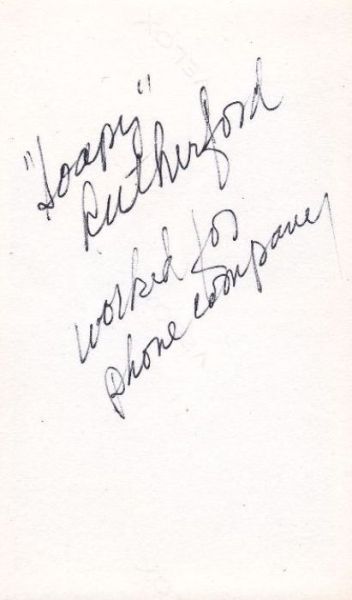 "Soapy"
Rutherford
worked for
phone company